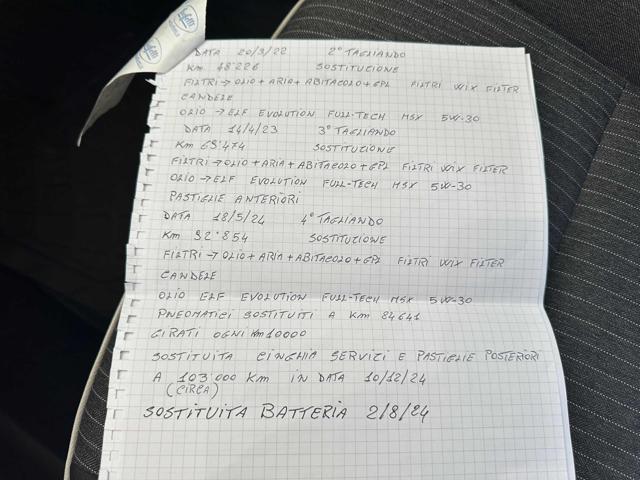 DATA 20/3/22 2° TAGLIANDO
Km 48'226 SOSTITUZIONE
FILTRI → OLIO + ARIA + ABITACOLO + GPL FILTRI WIX FILTER
CANDELE
OLIO → ELF EVOLUTION FULL-TECH MSX 5W-30
DATA 14/4/23 3° TAGLIANDO
Km 69'474 SOSTITUZIONE
FILTRI → OLIO + ARIA + ABITACOLO + GPL FILTRI WIX FILTER
OLIO → ELF EVOLUTION FULL-TECH MSX 5W-30
PASTIGLIE ANTERIORI
DATA 18/5/24 4° TAGLIANDO
Km 92'854 SOSTITUZIONE
FILTRI → OLIO + ARIA + ABITACOLO + GPL FILTRI WIX FILTER
CANDELE
OLIO ELF EVOLUTION FULL-TECH MSX 5W-30
PNEUMATICI SOSTITUITI A Km 84641
GIRATI OGNI Km 10000
SOSTITUITA CINGHIA SERVIZI E PASTIGLIE POSTERIORI
A 103'000 Km IN DATA 10/12/24
(CIRCA)
SOSTITUITA BATTERIA 2/8/24